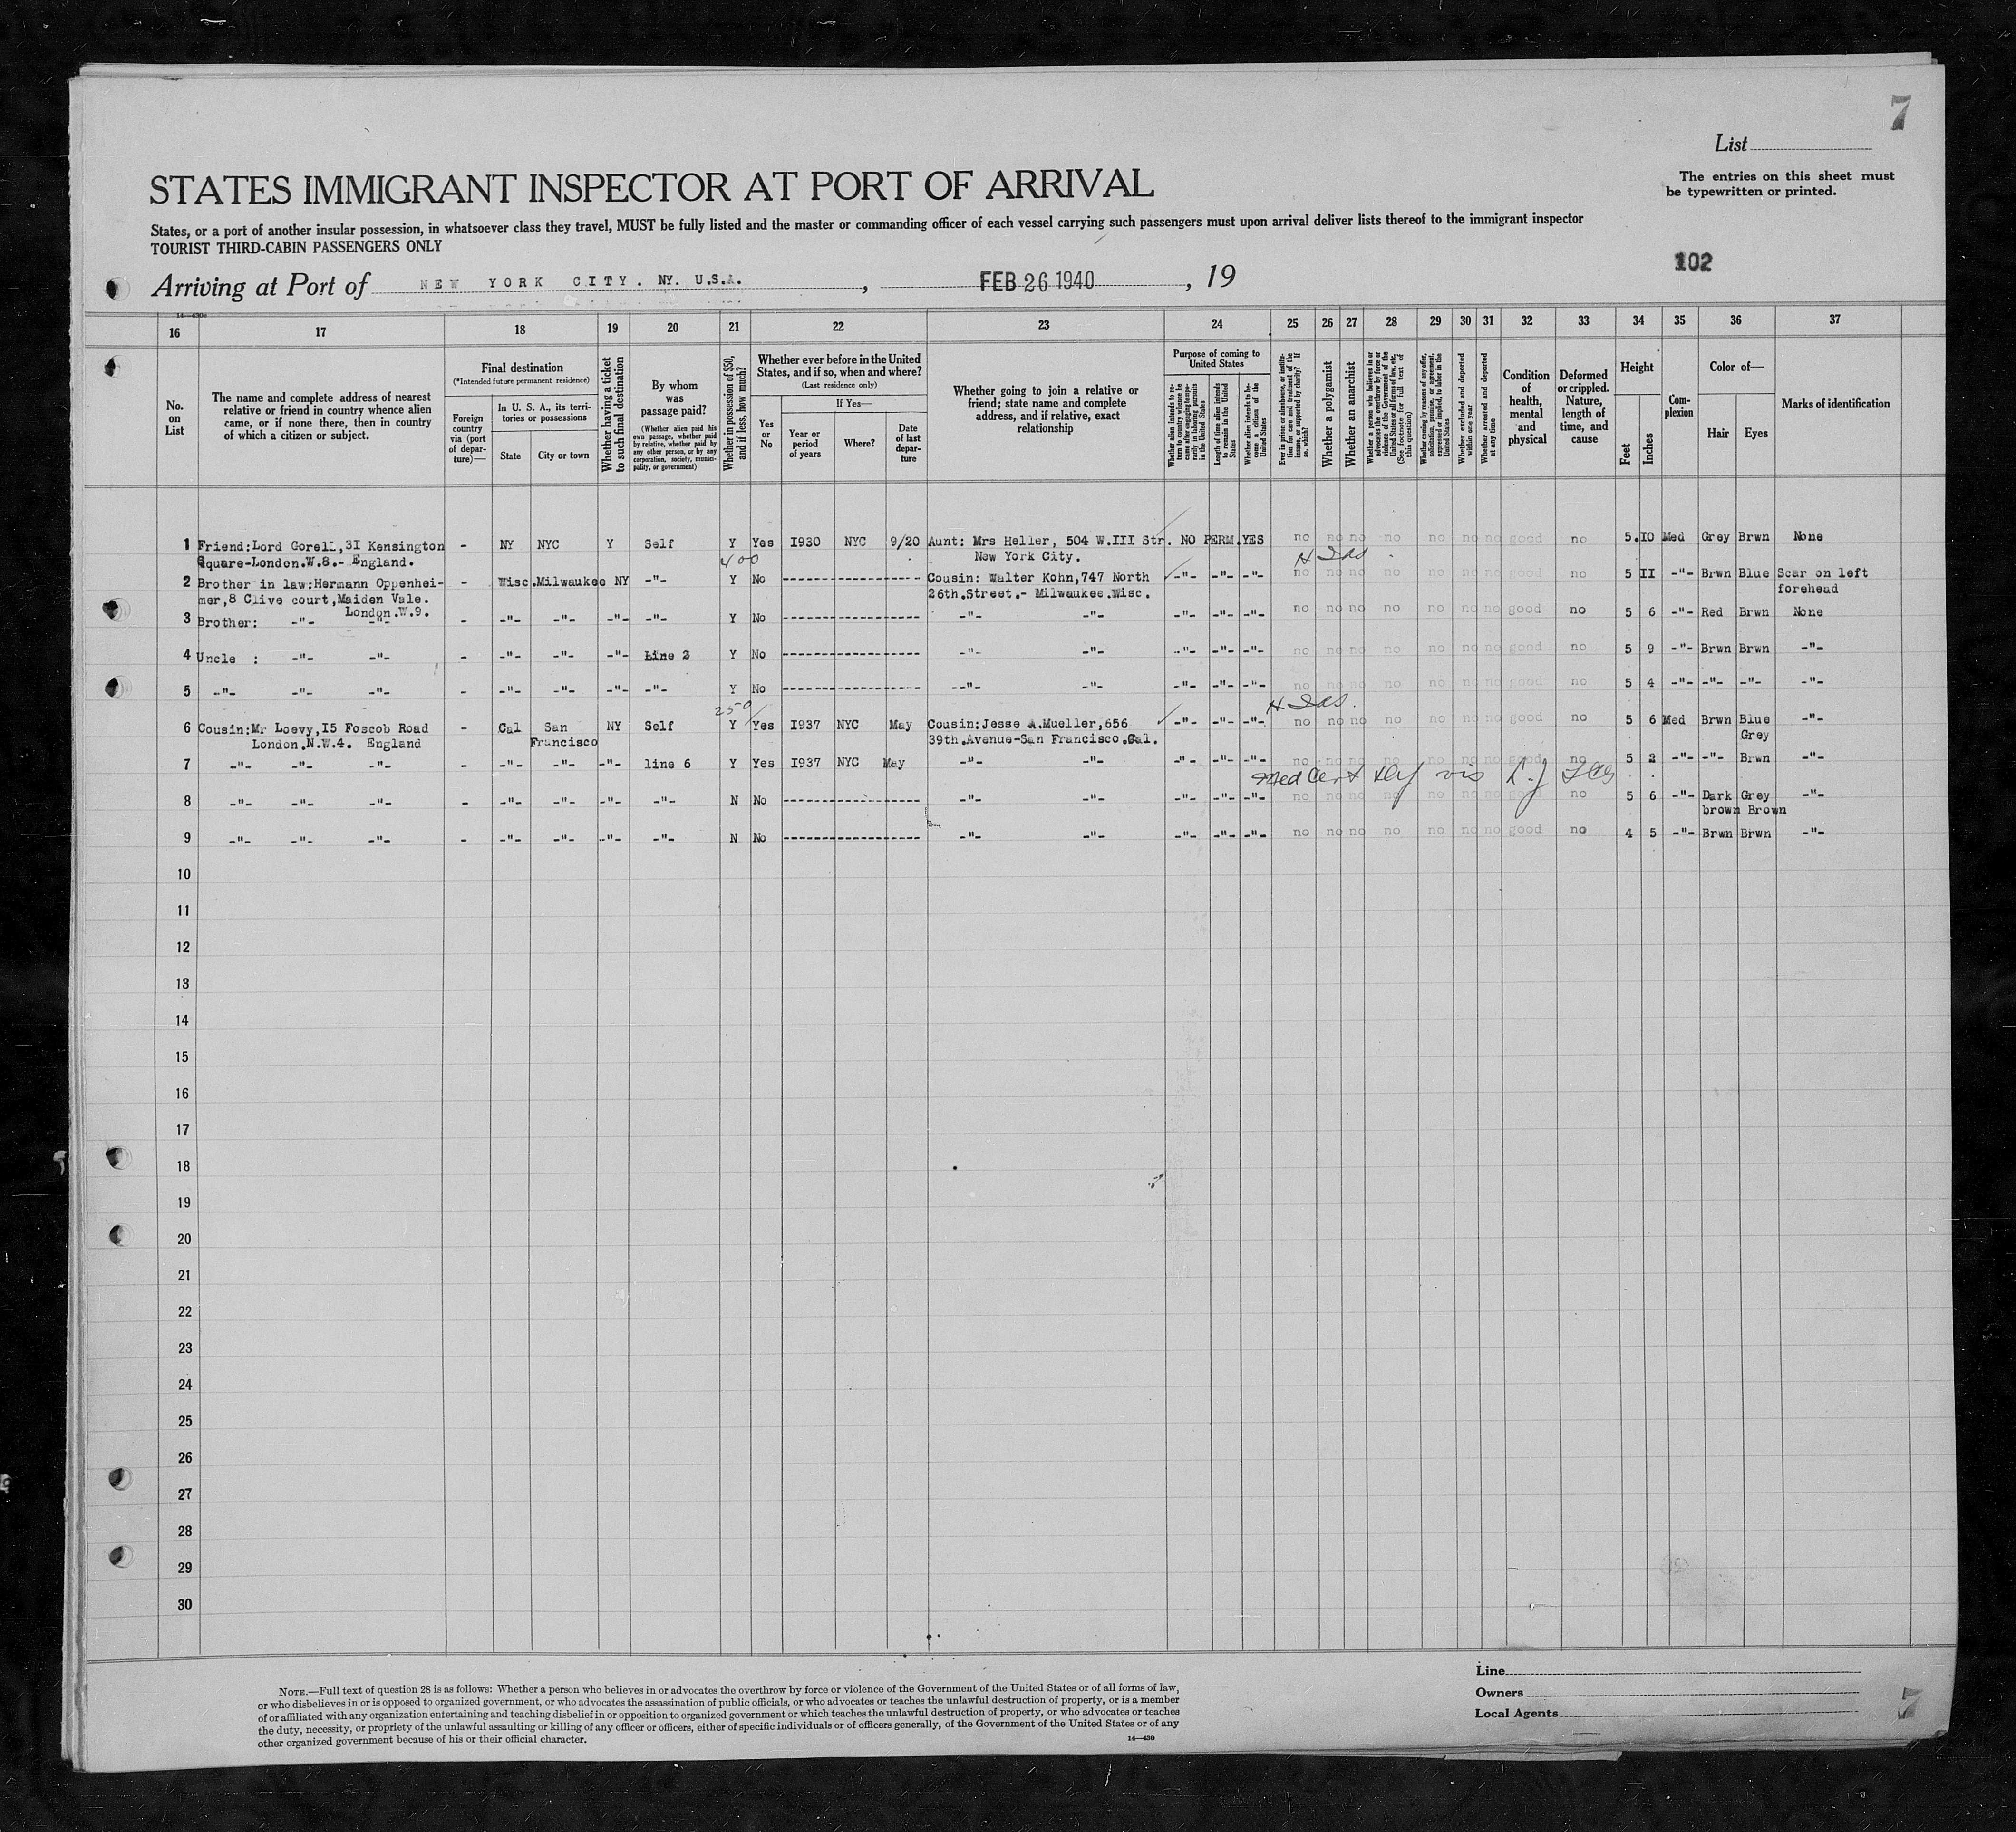 7
List
The entries on this sheet must
be typewritten or printed.
STATES IMMIGRANT INSPECTOR AT PORT OF ARRIVAL
States, or a port of another insular possession, in whatsoever class they travel, MUST be fully listed and the master or commanding officer of each vessel carrying such passengers must upon arrival deliver lists thereof to the immigrant inspector
TOURIST THIRD-CABIN PASSENGERS ONLY
102
Arriving at Port of NEW YORK CITY. NY. U.S.A. , FEB 26 1940 , 19
16 17 18 19 20 21 22 23 24 25 26 27 28 29 30 31 32 33 34 35 36 37
No. on List
The name and complete address of nearest
relative or friend in country whence alien
came, or if none there, then in country
of which a citizen or subject.
Final destination
(*Intended future permanent residence)
Foreign country via (port of departure)—
In U. S. A., its territories or possessions
State City or town
Whether having a ticket to such final destination
By whom was passage paid?
(Whether alien paid his own passage, whether paid by relative, whether paid by any other person, or by any corporation, society, municipality, or government)
Whether in possession of $50, and if less, how much?
Whether ever before in the United
States, and if so, when and where?
(Last residence only)
Yes or No
If Yes—
Year or period of years
Where?
Date of last departure
Whether going to join a relative or
friend; state name and complete
address, and if relative, exact
relationship
Purpose of coming to
United States
Whether alien intends to return to country whence he came after engaging temporarily in laboring pursuits in the United States
Length of time alien intends to remain in the United States
Whether alien intends to become a citizen of the United States
Ever in prison or almshouse, or institution for care and treatment of the insane, or supported by charity? If so, which?
Whether a polygamist
Whether an anarchist
Whether a person who believes in or advocates the overthrow by force or violence of the Government of the United States or all forms of law, etc. (See footnote for full text of this question)
Whether coming by reasons of any offer, solicitation, promise, or agreement, expressed or implied, to labor in the United States
Whether excluded and deported within one year
Whether arrested and deported at any time
Condition of health, mental and physical
Deformed or crippled. Nature, length of time, and cause
Height
Feet Inches
Complexion
Color of—
Hair Eyes
Marks of identification
1 Friend:Lord Gorell,3I Kensington - NY NYC Y Self Y Yes I930 NYC 9/20 Aunt: Mrs Heller, 504 W.III Str. NO PERM.YES no no no no no no no good no 5.IO Med Grey Brwn None
Square-London.W.8.- England. 400 New York City.
2 Brother in law:Hermann Oppenhei- - Wisc.Milwaukee NY -"- Y No Cousin: Walter Kohn,747 North -"- -"- -"- no no no no no no no good no 5 II -"- Brwn Blue Scar on left
mer,8 Clive court,Maiden Vale. 26th.Street.- Milwaukee.Wisc. forehead
London.W.9.
3 Brother: -"- -"- - -"- -"- -"- -"- Y No -"- -"- -"- -"- -"- no no no no no no no good no 5 6 -"- Red Brwn None
4 Uncle : -"- -"- - -"- -"- -"- Line 2 Y No -"- -"- -"- -"- -"- no no no no no no no good no 5 9 -"- Brwn Brwn -"-
5 -"- -"- -"- - -"- -"- -"- -"- Y No -"- -"- -"- -"- -"- no no no no no no no good no 5 4 -"- -"- -"- -"-
250
6 Cousin:Mr Loevy,I5 Foscob Road - Cal San NY Self Y Yes I937 NYC May Cousin:Jesse A.Mueller,656 -"- -"- -"- no no no no no no no good no 5 6 Med Brwn Blue -"-
London.N.W.4. England Francisco 39th.Avenue-San Francisco.Cal. Grey
7 -"- -"- -"- - -"- -"- -"- line 6 Y Yes I937 NYC May -"- -"- -"- -"- -"- no no no no no no no good no 5 2 -"- -"- Brwn -"-
Med Cert
8 -"- -"- -"- - -"- -"- -"- -"- N No -"- -"- -"- -"- -"- no no no no no no no good no 5 6 -"- Dark Grey -"-
brown Brown
9 -"- -"- -"- - -"- -"- -"- -"- N No -"- -"- -"- -"- -"- no no no no no no no good no 4 5 -"- Brwn Brwn -"-
10
11
12
13
14
15
16
17
18
19
20
21
22
23
24
25
26
27
28
29
30
Line
Owners
Local Agents
7
NOTE.—Full text of question 28 is as follows: Whether a person who believes in or advocates the overthrow by force or violence of the Government of the United States or of all forms of law,
or who disbelieves in or is opposed to organized government, or who advocates the assassination of public officials, or who advocates or teaches the unlawful destruction of property, or is a member
of or affiliated with any organization entertaining and teaching disbelief in or opposition to organized government or which teaches the unlawful destruction of property, or who advocates or teaches
the duty, necessity, or propriety of the unlawful assaulting or killing of any officer or officers, either of specific individuals or of officers generally, of the Government of the United States or of any
other organized government because of his or their official character.
14—430